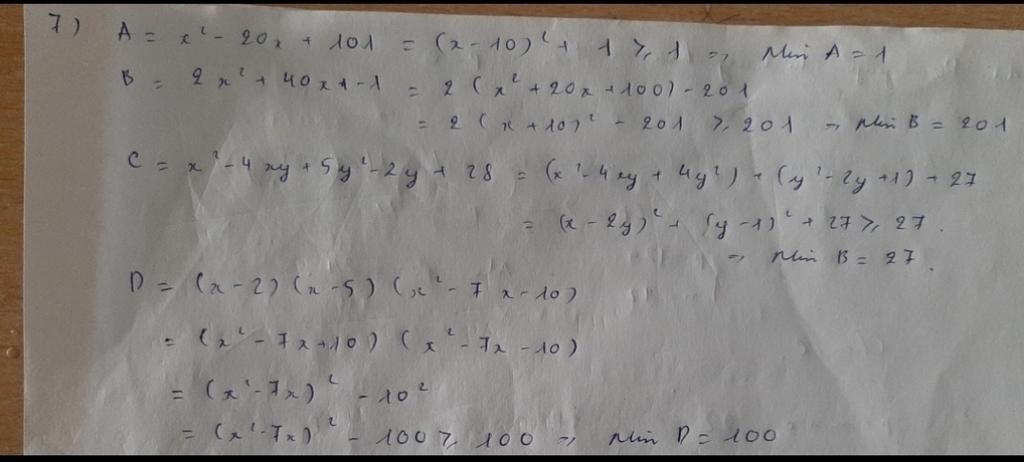 7) A = x² - 20x + 101 = (x - 10)² + 1 ≥ 1 => Min A = 1
B = 2x² + 40x + -1 = 2 (x² + 20x + 100) - 201
= 2 (x + 10)² - 201 ≥ 201 => Min B = 201
C = x² - 4xy + 5y² - 2y + 28 = (x² - 4xy + 4y²) + (y² - 2y + 1) + 27
= (x - 2y)² + (y - 1)² + 27 ≥ 27.
=> Min B = 27.
D = (x - 2) (x - 5) (x² - 7x - 10)
= (x² - 7x + 10) (x² - 7x - 10)
= (x² - 7x)² - 10²
= (x² - 7x)² - 100 ≥ 100 => Min D = 100